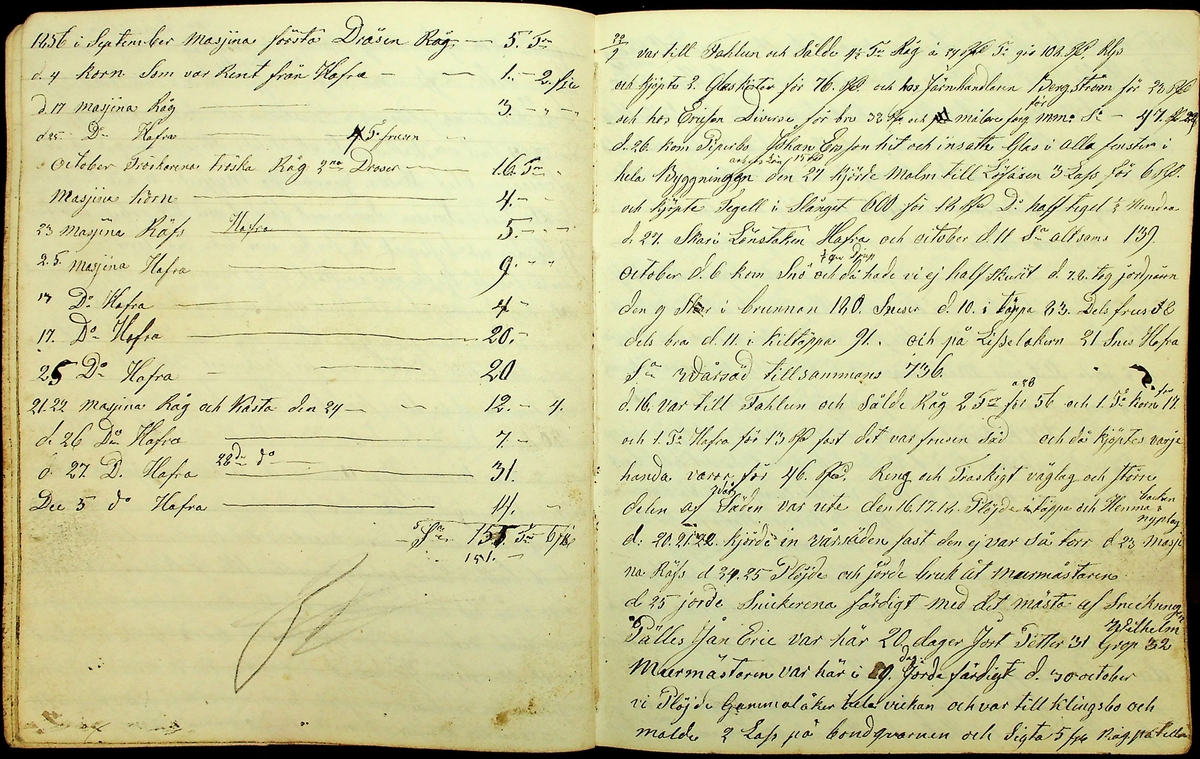 1856 i September Masjina första Dräsen Råg — 5. Tr
d 4 Korn Som var Rent från Hafra — — 1. — 2. fjr
d. 17 masjina Råg — 3. — "
d 25 — Do Hafra — Tr frusen
October Tröskarena tröska Råg 2na Droser — 16. Tr
Masjina Korn — 4. -
23 masjina Räfs Hafra — 5. -
25. masjina Hafra — 9. - "
Do Hafra — 4 -
17. Do Hafra — 20. -
25 Do Hafra — 20
21.22 Masjina Råg och Kasta den 24 — — 12. — 4.
d. 26 Do Hafra — 7. -
d. 27 D. Hafra 28de do — 31.
Dec 5 do Hafra —
Sa. Tr 6 fjr
151. -
var till Fahlun och Sålde Tr Råg a Tr
och kjöpte 2. Glas kistor för 76. och hos Järnhandlern Bergström för 23
och hos Ericson Diverse för bra och för målare färg mm: Sa — 47.
d. 26. kom Johan Ersson hit och insatte Glas i alla fenster i
hela Byggningen den 27 kjörde Malm till 3 Lass för 6
och kjöpte Tegell i Slånget 600 för Do half tegel 2 Hundra
d. 27. Skari Hafra och october d. 11 Sa altsams 139
October d. 6 kom Snö och då hade vi ej half Skurit d. 7.8. tog jordpärin
den 9 Skar i brunnan 180 Sneser d. 10. i täppa 83. Dels frus 58
dels bra d. 11. i kiltäppa 91. och på 21 Snes Hafra
Sa vårsäd tillsammans 736
d. 16. var till Fahlun och Sålde Råg 2 Tr för 56 och 1. Tr Korn för 17.
och 1. Tr Hafra för 13 fast det var frusen Säd och då kjöptes varje
handa varor för 46. Reng och Traskigt väglag och större
delen af vår Säden var ute den 16.17.18. Plöjde i täppa och Hemma backen nyplog
d: 20.21.22. kjörde in vårsäden fast den ej var så torr d 23 Masji
na Räfs d 24.25 Plöjde och jorde bruk åt Murmästaren
d 25 jorde Snickerena färdigt med det mästa af Snickningen
Pålles Jan Eric var här 20 dager Jost Petter 31 Wilhelm Grop 32
Murmästaren var här i dag. Jorde färdigt d. 30 october
vi Plöjde Gammalåker hela vickan och var till Klingsbo och
malde 2 Lass på bondqvarnen och Sigta 5 fjr Råg på